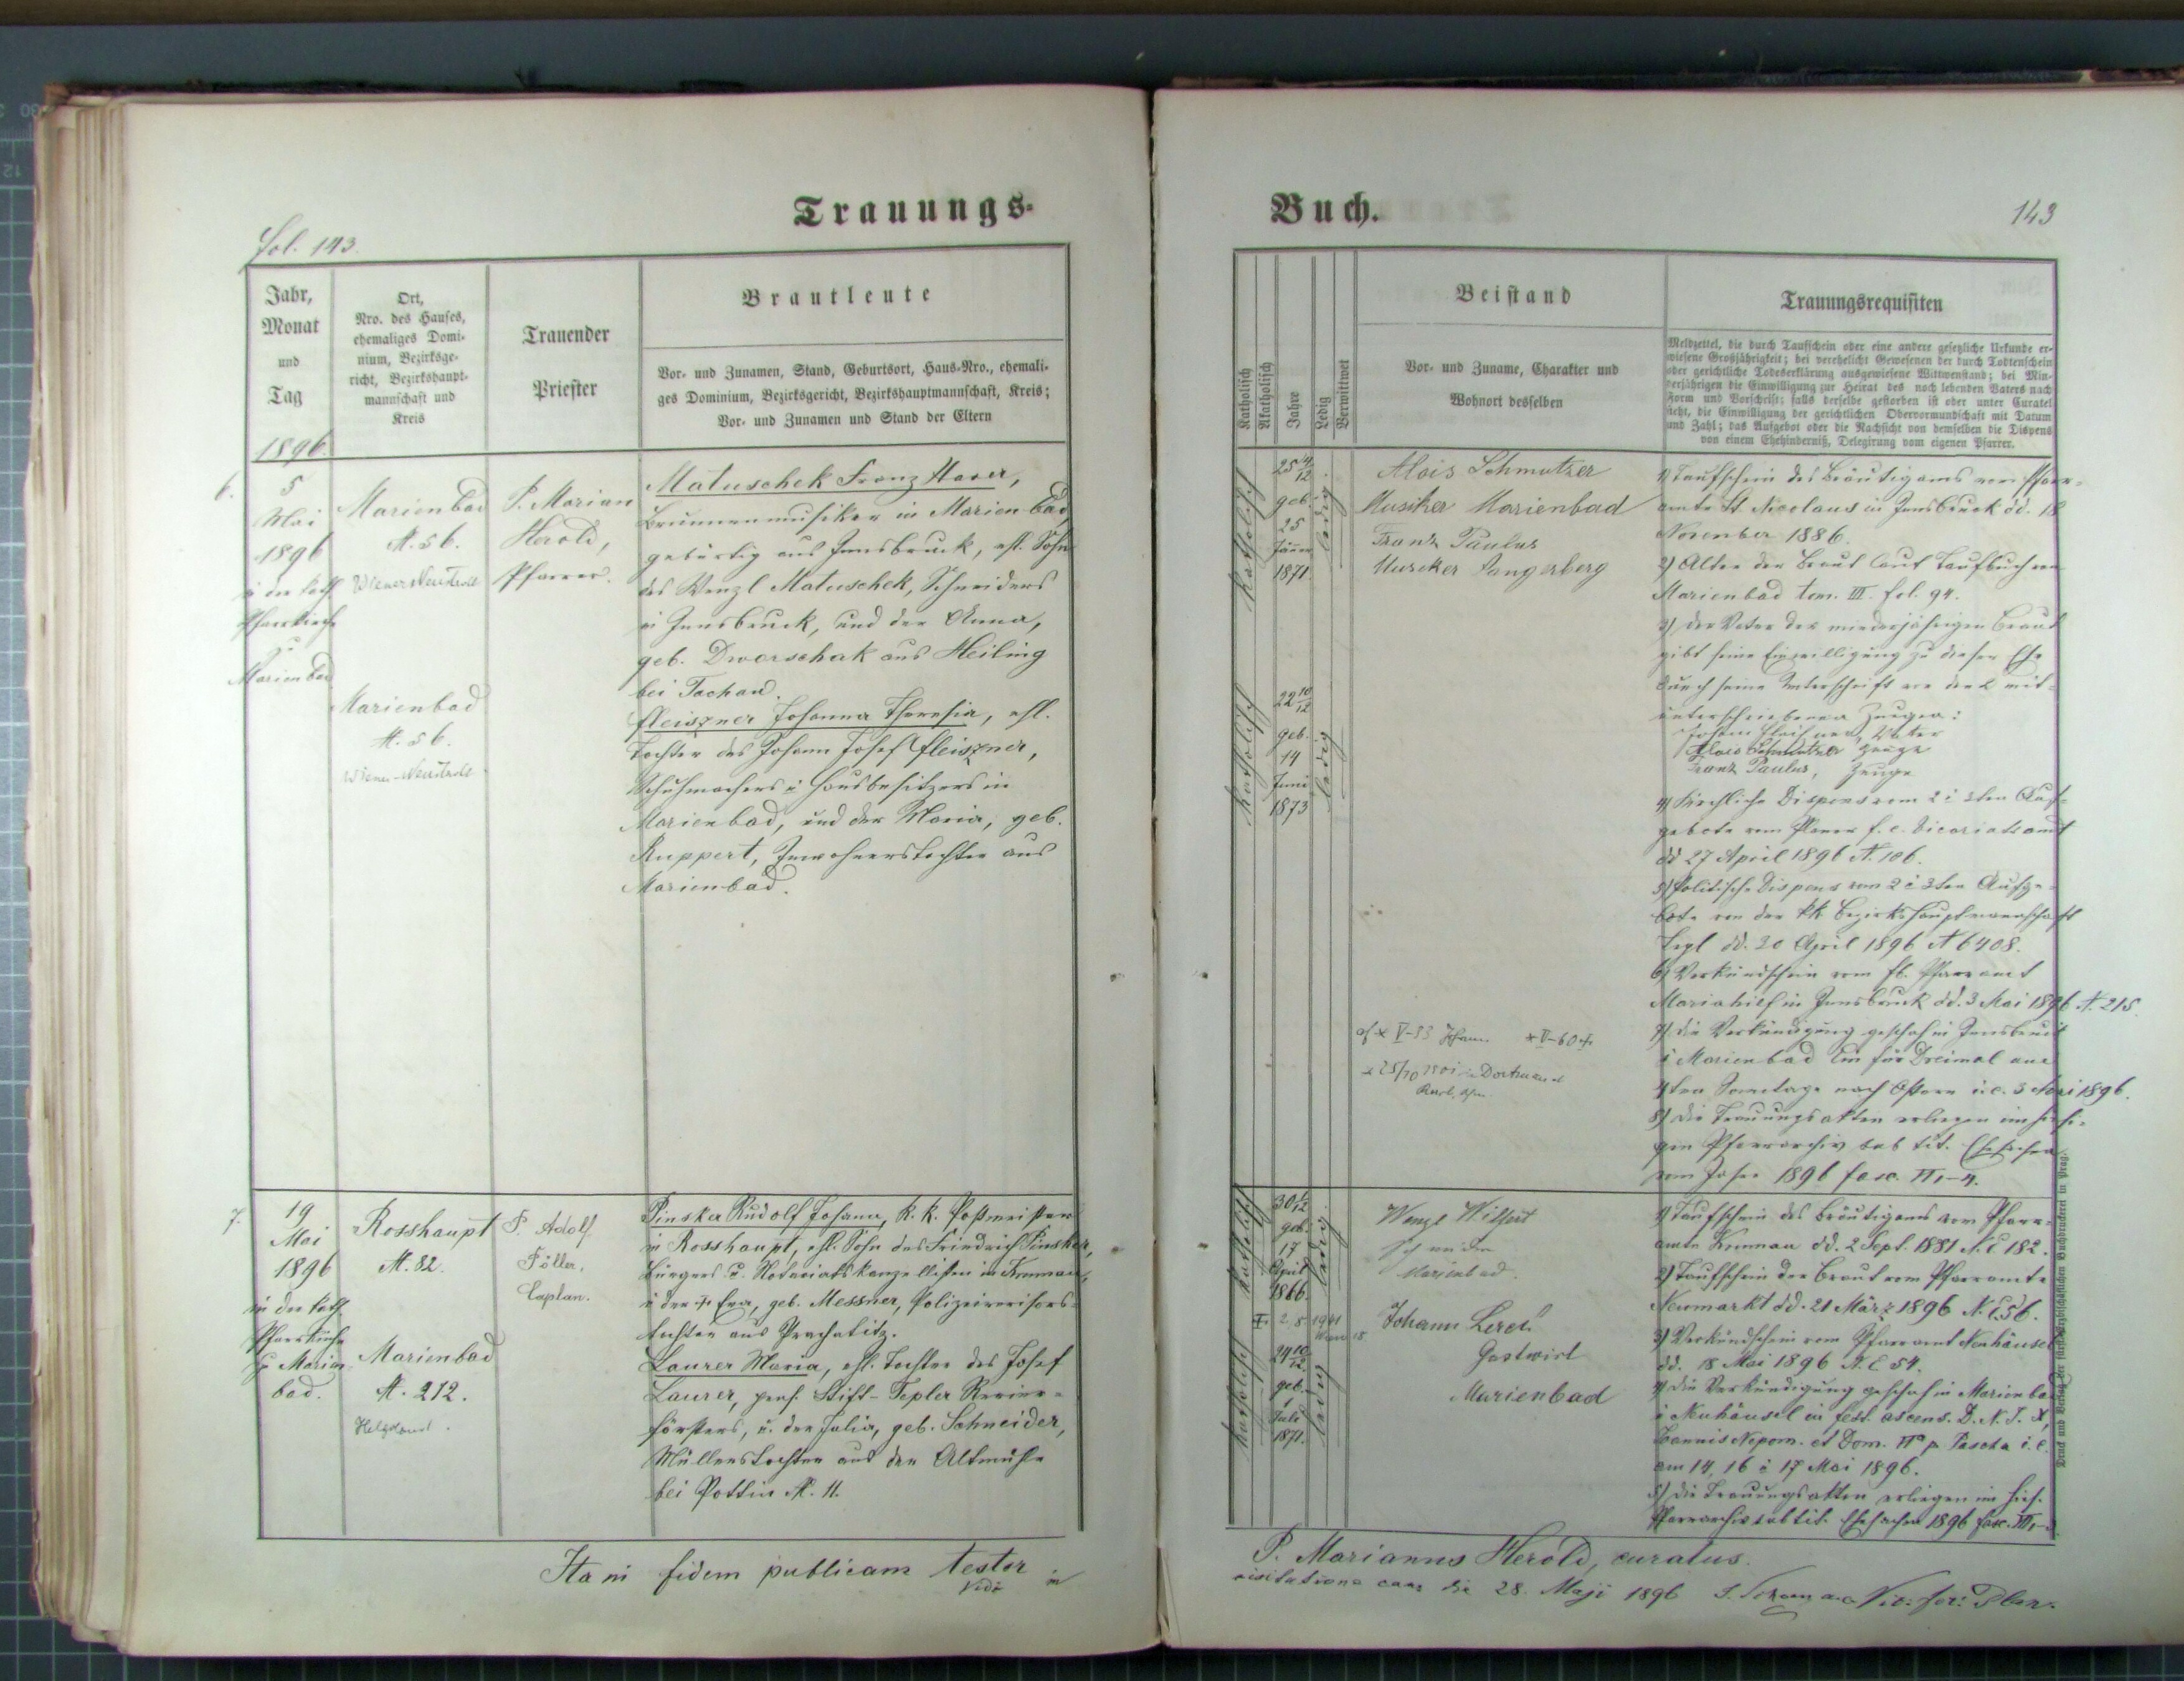 Trauungs-
Fol. 143.
Jahr,
Monat
und
Tag
1896.
Ort,
Nro. des Hauses,
ehemaliges Domi-
nium, Bezirksge-
richt, Bezirkshaupt-
mannschaft und
Kreis
Trauender
Priester
Brautleute
Vor- und Zunamen, Stand, Geburtsort, Haus-Nro., ehemali-
ges Dominium, Bezirksgericht, Bezirkshauptmannschaft, Kreis;
Vor- und Zunamen und Stand der Eltern
6.
5
Mai
1896
in der kath
Pfarrkirche
zu
Marienbad
Marienbad
N. 56.
Wiener Neustadt
P. Marian
Herold,
Pfarrer.
Matuschek Franz Xaver,
Brunnenmusiker in Marienbad,
gebürtig aus Innsbruck, ehl. Sohn
des Wenzl Matuschek, Schneiders
in Innsbruck, und der Anna,
geb. Dworschak aus Heiling
bei Tachau.
Marienbad
N. 56.
Wiener-Neustadt
Fleiszner Johanna Theresia, ehl.
Tochter des Johann Josef Fleiszner,
Schuhmachers u Hausbesitzers in
Marienbad, und der Maria, geb.
Ruppert, Inwohnerstochter aus
Marienbad.
7.
19
Mai
1896
in der kath
Pfarrkirche
zu Marien-
bad.
Rosshaupt
N. 82.
P. Adolf
Föller,
Caplan.
Pinsker Rudolf Johann, k. k. Postmeister
in Rosshaupt, ehl. Sohn des Friedrich Pinsker,
Bürgers u. Notariatskanzellisten in Krumau,
u der † Eva, geb. Messner, Polizeirevisors-
tochter aus Prachatitz.
Marienbad
N. 212.
Laurer Maria, ehl. Tochter des Josef
Laurer, pens. Stift-Tepler Revier-
försters, u. der Julia, geb. Schneider,
Müllerstochter aus der Altmühle
bei Pottin N. 11.
Ita in fidem publicam testor
Vidi in
Buch.
143
Katholisch
Akatholisch
Jahre
Ledig
Verwittwet
Beistand
Vor- und Zuname, Charakter und
Wohnort desselben
Trauungsrequisiten
Meldzettel, die durch Taufschein oder eine andere gesetzliche Urkunde er-
wiesene Großjährigkeit; bei verehelicht Gewesenen der durch Todtenschein
oder gerichtliche Todeserklärung ausgewiesene Wittwenstand; bei Min-
derjährigen die Einwilligung zur Heirat des noch lebenden Vaters nach
Form und Vorschrift; falls derselbe gestorben ist oder unter Curatel
steht, die Einwilligung der gerichtlichen Obervormundschaft mit Datum
und Zahl; das Aufgebot oder die Nachsicht von demselben die Dispens
von einem Ehehinderniß, Delegirung vom eigenen Pfarrer.
katholisch
25
geb.
25
Jänner
1871.
ledig
Alois Schmutzer
Musiker Marienbad
Franz Paulus
Musiker Sangerberg
katholisch
22 10/12
geb.
14
Juni
1873
ledig
1) Taufschein des Bräutigams vom Pfarr-
amte St. Nicolaus in Innsbruck dd. 18
November 1886.
2) Alter der Braut laut Taufbuch von
Marienbad tom. III. fol. 94.
3) Der Vater der minderjährigen Braut
gibt seine Einwilligung zu dieser Ehe
durch seine Unterschrift vor den 2 mit-
unterschriebenen Zeugen:
Vater
Alois Schmutzer Zeuge
Franz Paulus, Zeuge
4) Kirchliche Dispens vom 2 u 3ten Auf-
gebote vom Planer f. e. Vicariatsamt
dd 27 April 1896 N. 106.
5) Politische Dispens vom 2 u 3ten Aufge-
bote von der kk Bezirkshauptmannschaft
Tepl dd. 20 April 1896 N 6408.
6) Verkündschein vom fb. Pfarramt
Mariahilf in Innsbruck dd. 3 Mai 1896 N. 215.
7) Die Verkündigung geschah in Innsbruck
u Marienbad Ein für Dreimal am
4ten Sonntage nach Ostern i.e. 3 Mai 1896.
8) Die Trauungsakten erliegen im hiesi-
gen Pfarrarchiv sub tit. Ehesachen
vom Jahre 1896 fasc. II,-4.
25/10 1901 in Dortmund
katholisch
30 1/12
geb.
17
April
1866.
ledig
Wenzl Wilfert
Schneider
Marienbad.
2.8 1941
Wien 18
Johann Lerch
Gastwirt
Marienbad
katholisch
24 10/12
geb.
1
Juli
1871.
ledig
1) Taufschein des Bräutigams vom Pfarr-
amte Krumau dd. 2 Sept. 1881 N. E 182.
2) Taufschein der Braut vom Pfarramte
Neumarkt dd. 21 März 1896 N. E. 56.
3) Verkündschein vom Pfarramt Neuhäusel
dd. 18 Mai 1896 N. E 54.
4) Die Verkündigung geschah in Marienbad
u Neuhäusel in fest. ascens. D. N. J. X,
Joannis Nepom. et Dom. VI p. Pascha i. e.
am 14, 16 u 17 Mai 1896.
5) Die Trauungsakten erliegen im hies.
Pfarrarchiv sub tit. Ehesachen 1896 fasc. III,-
Druck und Verlag der fürsterzbischöflichen Buchdruckerei in Prag.
P. Marianus Herold, curatus.
visitatione can. die 28. Maji 1896